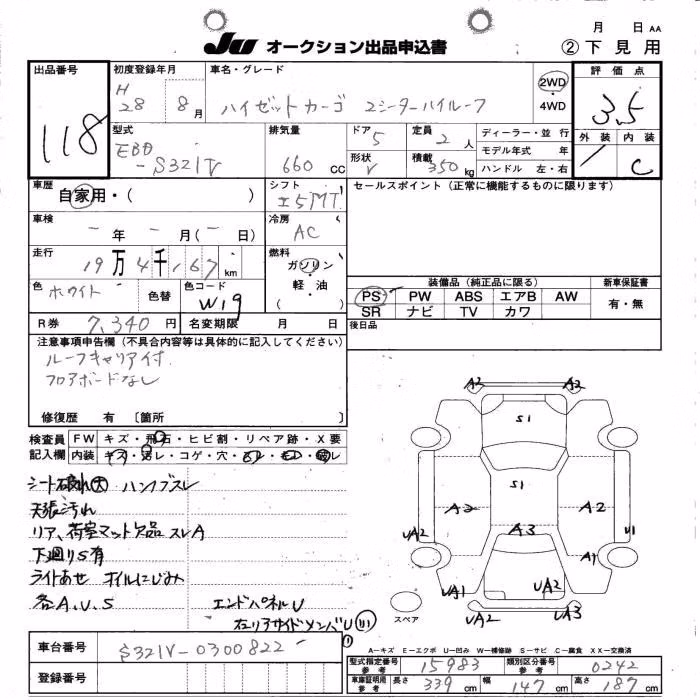 月 日 AA
JU オークション出品申込書 ②下見用
出品番号 初度登録年月 車名・グレード 評価点
118 H28 8月 ハイゼットカーゴ 2シーターハイルーフ 2WD・4WD 3.5
型式 排気量 ドア 定員 ディーラー・並行 外装 内装
EBD-S321V 660cc 5 2人 モデル年式 年 C
形状 積載 ハンドル 左・右
V 350kg
車歴 シフト セールスポイント(正常に機能するものに限ります)
自家用・( ) 5MT
車検 冷房
- 年 - 月(- 日) AC
走行 燃料
19万4千167km ガソリン・軽油
( )
色 色替 色コード 装備品(純正品に限る) 新車保証書
ホワイト W19 PS PW ABS エアB AW 有・無
SR ナビ TV カワ
R券 7,340円 名変期限 月 日 後日品
注意事項申告欄(不具合内容等は具体的に記入してください)
ルーフキャリア付
フロアボードなし
修復歴 有 〔箇所 〕
検査員 FW キズ・飛石・ヒビ割・リペア跡・X要
記入欄 内装 キズ・汚レ・コゲ・穴・スレ・破レ
シート破れ大 ハンドルスレ
天張汚れ
リア、荷室マット欠品 スレA
下廻りS有
ライトあせ オイルにじみ
各A.U.S エンドパネルU
右リアサイドメンバU
A2 A2
S1
S1
UA2 A2 A3 A2 U1
A1
UA1 UA2
UA2 UA3
スペア
A-キズ E-エクボ U-凹み W-補修跡 S-サビ C-腐食 XX-交換済
車台番号 S321V-0300822
型式指定番号 参考 15983 類別区分番号 参考 0242
登録番号
車庫証明用 参考 長さ 339cm 幅 147cm 高さ 187cm